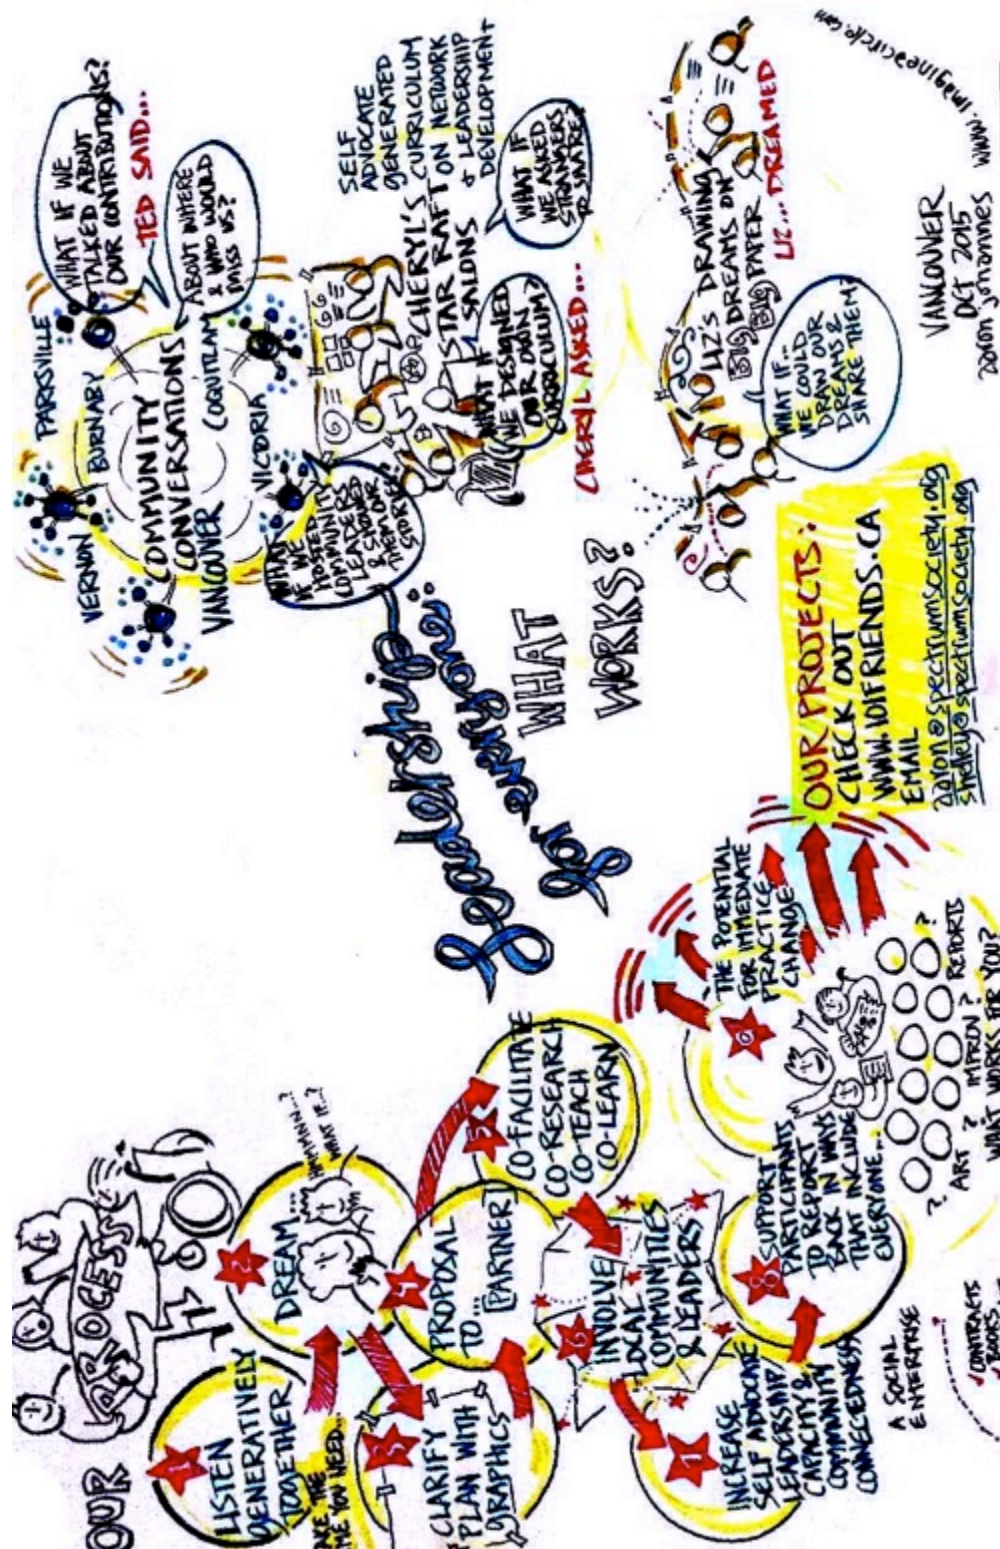 OUR
PROCESS
1
LISTEN
GENERATIVELY
TOGETHER
2
DREAM...
WHAT IF..?
3
CLARIFY
PLAN WITH
GRAPHICS
4
PROPOSAL
TO...
PARTNER
5
CO-FACILITATE
CO-RESEARCH
CO-TEACH
CO-LEARN
6
INVOLVE
LOCAL
COMMUNITIES
& LEADERS
7
INCREASE
SELF ADVOCATE
LEADERSHIP
CAPACITY &
COMMUNITY
CONNECTEDNESS
8
SUPPORT
PARTICIPANTS
TO REPORT
BACK IN WAYS
THAT INCLUDE
EVERYONE...
9
THE POTENTIAL
FOR IMMEDIATE
PRACTICE
CHANGE
? ART ? IMPROV ? REPORTS ?
WHAT WORKS FOR YOU?
A SOCIAL
ENTERPRISE
CONTRACTS
BOOKS
Leadership
for everyone
WHAT
WORKS?
OUR PROJECTS:
CHECK OUT
WWW.101FRIENDS.CA
EMAIL
aaron@spectrumsociety.org
shelley@spectrumsociety.org
VERNON
PARKSVILLE
BURNABY
COMMUNITY
CONVERSATIONS
VANCOUVER
COQUITLAM
VICTORIA
WHAT IF WE
TALKED ABOUT
OUR CONTRIBUTIONS?
TED SAID...
ABOUT WHERE
& WHO WOULD
MISS US?
WHAT
IF WE
HOSTED
COMMUNITY
LEADERS
& SHOWED
THEM OUR
STORIES?
SELF
ADVOCATE
GENERATED
CURRICULUM
ON NETWORK
& LEADERSHIP
DEVELOPMENT
CHERYL'S
STAR RAFT
SALONS
WHAT IF
WE DESIGNED
OUR OWN
CURRICULUM?
WHAT IF
WE ASKED
STRANGERS
TO SHARE?
CHERYL ASKED...
LIZ'S DRAWING
BIG DREAMS ON
BIG PAPER
LIZ... DREAMED
WHAT IF...
WE COULD
DRAW OUR
DREAMS &
SHARE THEM?
VANCOUVER
OCT 2015
aaron johannes www.imaginecircle.com